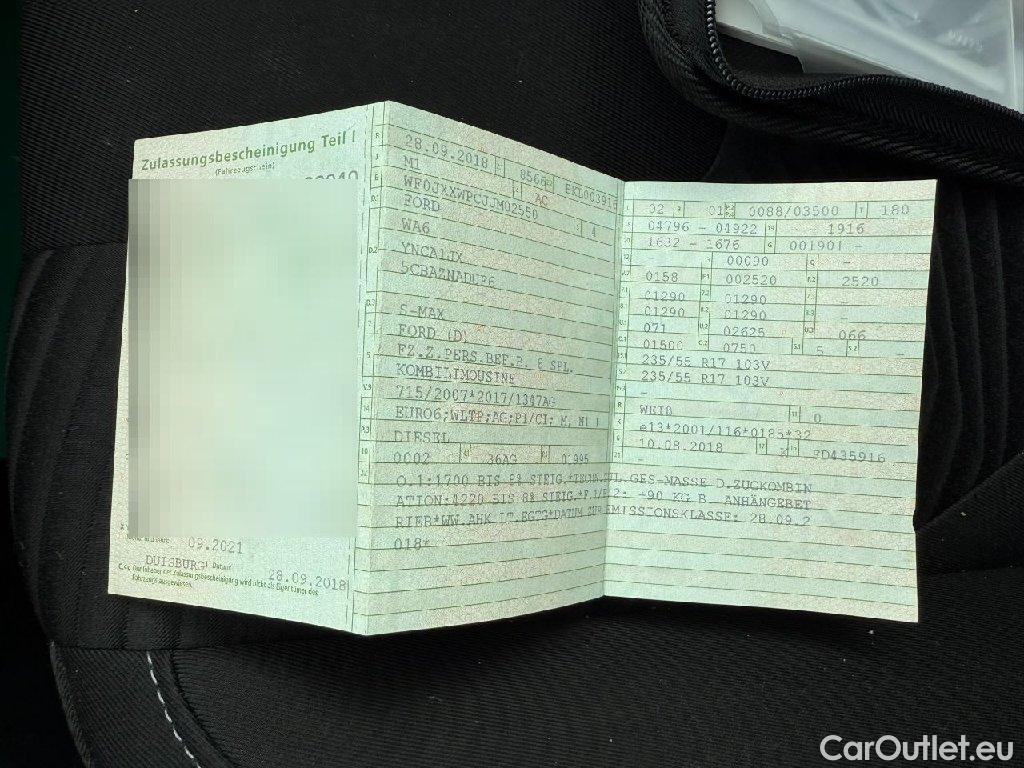 Zulassungsbescheinigung Teil I
(Fahrzeugschein)
09.2021
DUISBURG
Datum
28.09.2018
28.09.2018
M1 AC
FORD 4
WA6
S-MAX
FORD (D)
FZ.Z.PERS.BEF.B. 8 SPL.
KOMBILIMOUSINE
EURO6;WLTP;AG;PI/CI; M, N1 I
DIESEL
0002 36AG 01995
O.1:1700 BIS 8% STEIG.*TECHN.ZUL.GES-MASSE D.ZUGKOMBIN
ATION:4220 BIS 8% STEIG.* +90 KG B. ANHÄNGEBET
RIEB*WW.AHK LT.EGTG*DATUM ZUR EMISSIONSKLASSE: 28.09.2
018*
02 01 0088/03500 T 180
04796 - 01922 1916
1632 - 1676 G 001901 -
00090 Q -
0158 F.1 002520 F.2 2520
01290 01290 -
01290 01290 -
071 02625 066
01500 0.2 0750 S.1 5 S.2 -
235/55 R17 103V
235/55 R17 103V
-
R WEIß 11 0
K e13*2001/116*0185*32
6 10.08.2018 17 K
-
CarOutlet.eu